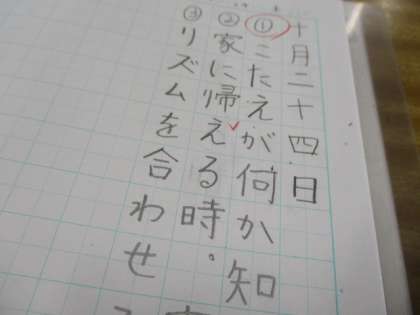 十月二十四日
①こたえが何か知
②家に帰える時。
③リズムを合わせ